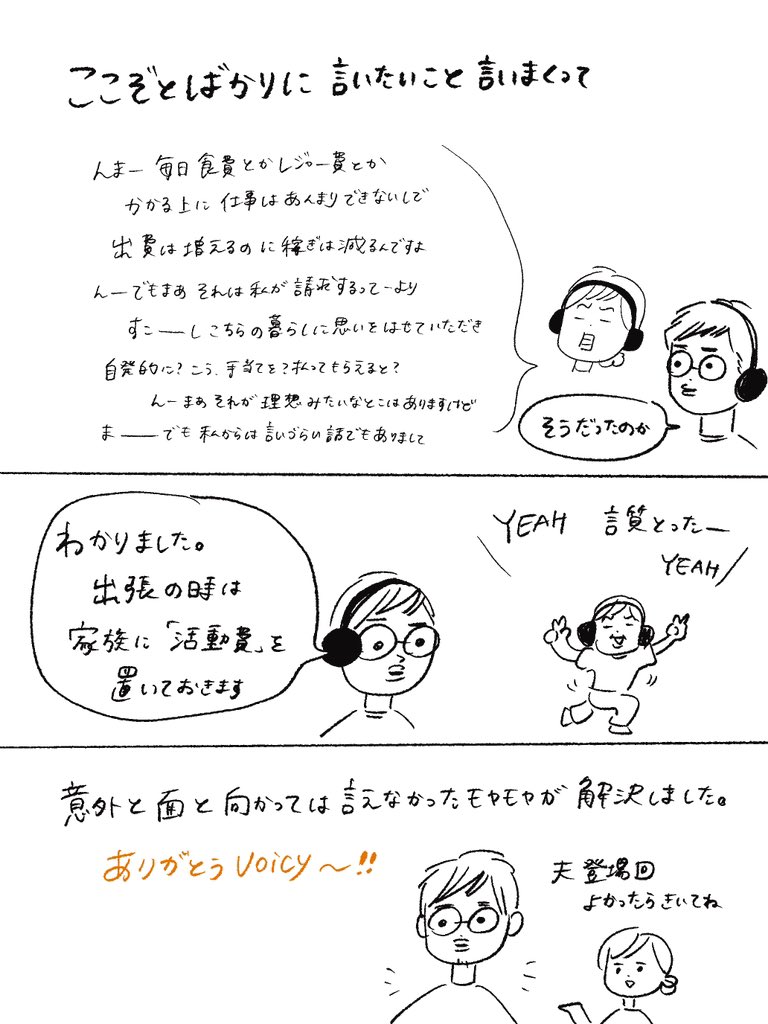 ここぞとばかりに 言いたいこと 言いまくって
んまー 毎日 食費とかレジャー費とか
かかる上に 仕事はあんまりできないしで
出費は増えるのに稼ぎは減るんですよ
んーでもまあ それは私が請求するってーより
すこーーしこちらの暮らしに思いをはせていただき
自発的に?こう、手当てを?払ってもらえると?
んーまあ それが理想みたいなとこはありますけど
まーーでも 私からは言いづらい話でもありまして
そうだったのか
わかりました。
出張の時は
家族に「活動費」を
置いておきます
YEAH 言質とったー
YEAH
意外と面と向かっては言えなかったモヤモヤが解決しました。
ありがとうVoicy〜!!
夫登場回
よかったらきいてね